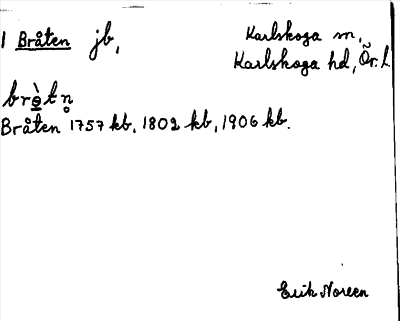 1 Bråten jb, Karlskoga sn,
Karlskoga hd, Ör. l.
Bråten 1757 kb, 1802 kb, 1906 kb.
Erik Noreen